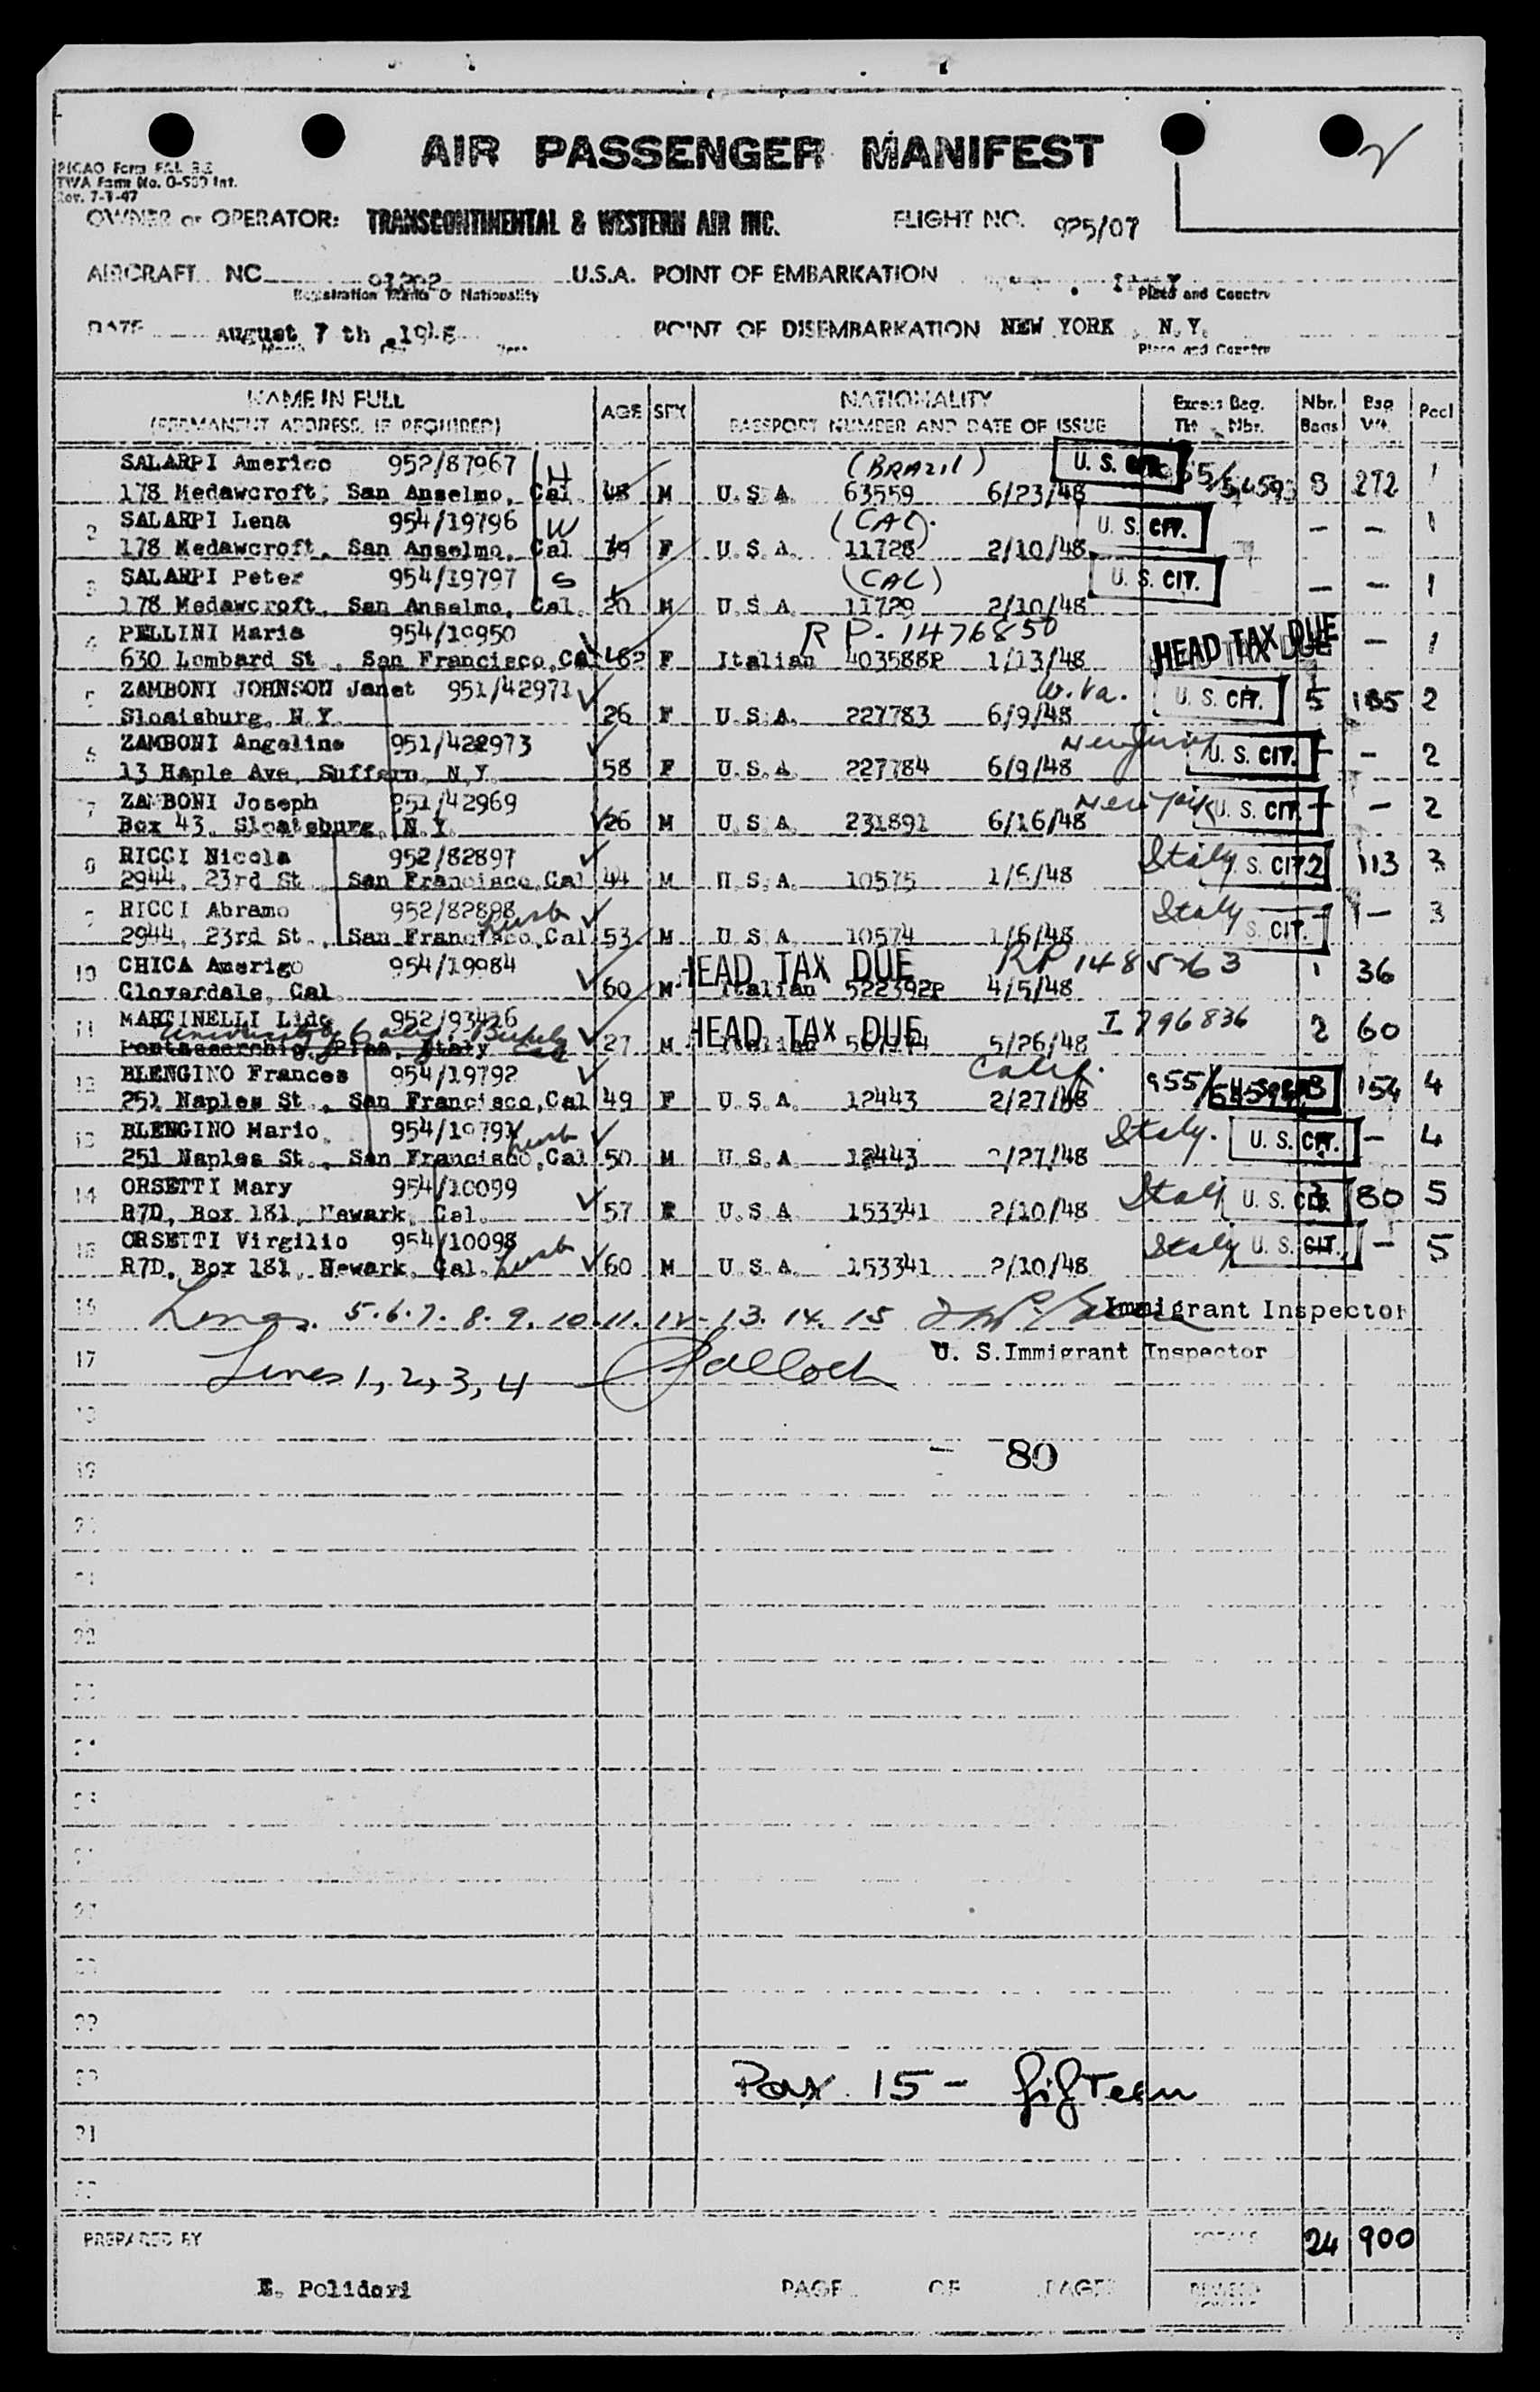 AIR PASSENGER MANIFEST
PICAO Form FAL
TWA Form No. O-509 Int.
Rev. 7-1-47
OWNER or OPERATOR: TRANSCONTINENTAL & WESTERN AIR INC. FLIGHT NO. 925/07
AIRCRAFT NC U.S.A. POINT OF EMBARKATION
Registration Marks & Nationality Place and Country
DATE August 7 th 1948 POINT OF DISEMBARKATION NEW YORK, N.Y.
Month Day Year Place and Country
NAME IN FULL AGE SEX NATIONALITY Excess Bag. Nbr. Bag Pool
(PERMANENT ADDRESS, IF REQUIRED) PASSPORT NUMBER AND DATE OF ISSUE Tkt Nbr. Bags Wt.
SALARPI Americo 952/87967 H (BRAZIL) U. S. CIT.
178 Medawcroft, San Anselmo, Cal 48 M U.S.A. 63559 6/23/48 8 272 1
2 SALARPI Lena 954/19796 W (CAL). U. S. CIT.
178 Medawcroft, San Anselmo, Cal F U.S.A. 11728 2/10/48 - - 1
3 SALARPI Peter 954/19797 S (CAL) U. S. CIT.
178 Medawcroft, San Anselmo, Cal. 20 M U.S.A 11729 2/10/48 - - 1
4 PELLINI Maria 954/19950 R P. 1476850 HEAD TAX DUE
630 Lombard St., San Francisco, Cal 62 F Italian 403588P 1/13/48 - 1
5 ZAMBONI JOHNSON Janet 951/42971 W. Va. U. S. CIT. 5 185 2
Sloaisburg, N.Y. 26 F U.S.A. 227783 6/9/48
6 ZAMBONI Angeline 951/422973 New Jersey U. S. CIT. - - 2
13 Maple Ave, Suffern, N.Y. 58 F U.S.A. 227784 6/9/48
7 ZAMBONI Joseph 951/42969 New York U. S. CIT. - - 2
Box 43, Sloatsburg, N.Y. 26 M U.S.A 231891 6/16/48
8 RICCI Nicola 952/82897 Italy U. S. CIT. 2 113 3
2944, 23rd St., San Francisco, Cal 44 M U.S.A. 10575 1/6/48
9 RICCI Abramo 952/82898 Italy U. S. CIT. - - 3
2944, 23rd St., San Francisco, Cal 53 M U.S.A 10574 1/6/48
10 CHICA Amerigo 954/19984 HEAD TAX DUE RP 1485763 1 36
Cloverdale, Cal 60 M Italian 522392P 4/5/48
11 MARTINELLI Lido 952/93426 HEAD TAX DUE I 796836 2 60
University of Calif. Cal
Pontasserchio, Pisa, Italy 27 M Italian 5/26/48
12 BLENGINO Frances 954/19792 Calif. U. S. CIT. 3 154 4
251 Naples St., San Francisco, Cal 49 F U.S.A 12443 2/27/48
13 BLENGINO Mario Italy. U. S. CIT. - 4
251 Naples St., San Francisco, Cal 50 M U.S.A 12443 2/27/48
14 ORSETTI Mary 954/10099 Italy U. S. CIT. 3 80 5
R7D, Box 181, Newark, Cal. 57 F U.S.A 153341 2/10/48
15 ORSETTI Virgilio 954/10098 Italy U. S. CIT. - 5
R7D, Box 181, Newark, Cal. husb 60 M U.S.A. 153341 2/10/48
16 Lines. 5.6.7. 8. 9. 10.11. 12-13. 14. 15 Immigrant Inspector
17 Lines 1, 2, 3, 4 U. S. Immigrant Inspector
18
- 80
19
22
Pax 15 - fifteen
PREPARED BY TOTALS 24 900
E. Polidori PAGE OF PAGES